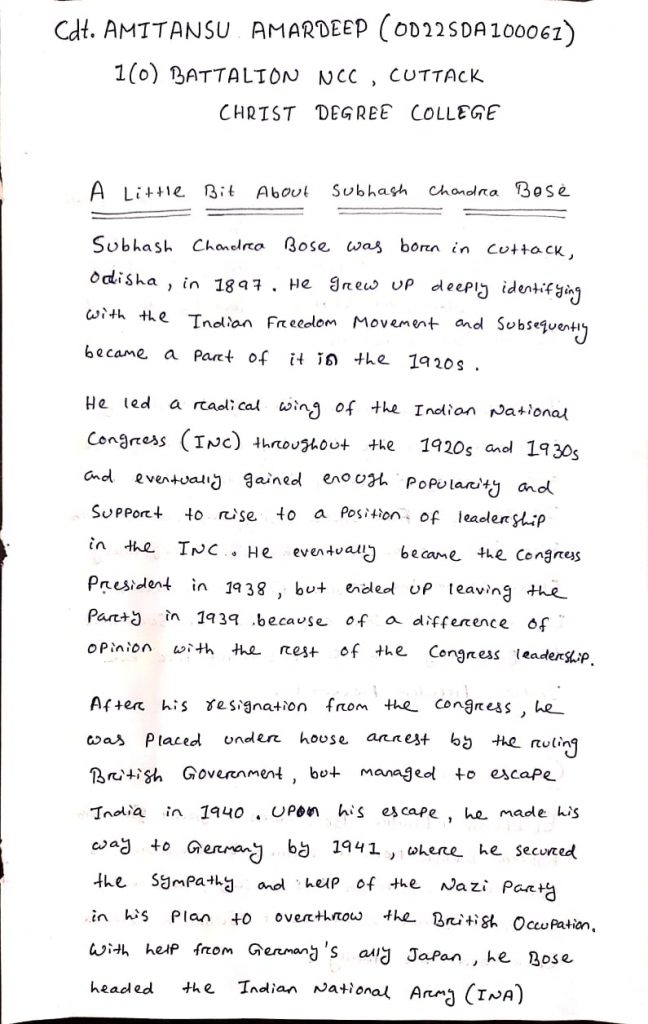 Cdt. AMITANSU AMARDEEP (OD22SDA100061)
1(O) BATTALION NCC, CUTTACK
CHRIST DEGREE COLLEGE
A Little Bit About Subhash Chandra Bose
Subhash Chandra Bose was born in Cuttack,
Odisha, in 1897. He grew up deeply identifying
with the Indian Freedom Movement and Subsequently
became a part of it in the 1920s.
He led a radical wing of the Indian National
Congress (INC) throughout the 1920s and 1930s
and eventually gained enough popularity and
support to rise to a position of leadership
in the INC. He eventually became the Congress
President in 1938, but ended up leaving the
Party in 1939 because of a difference of
opinion with the rest of the Congress leadership.
After his resignation from the congress, he
was placed under house arrest by the ruling
British Government, but managed to escape
India in 1940. Upon his escape, he made his
way to Germany by 1941, where he secured
the sympathy and help of the Nazi Party
in his plan to overthrow the British Occupation.
With help from Germany's ally Japan, he Bose
headed the Indian National Army (INA)